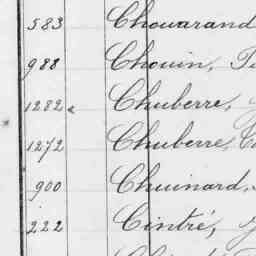 583 Chouarand
988 Chouin,
1282 Chuberre,
1272 Chuberre,
900 Chuinard,
222 Cintré,